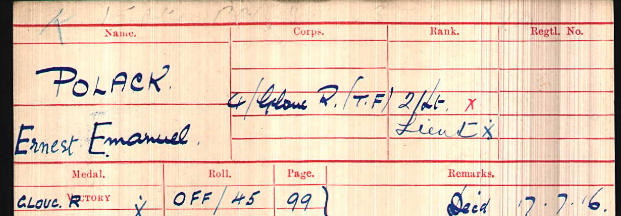 Name. Corps. Rank. Regtl. No.
POLACK.
4/Glouc R. (T.F) 2/Lt. x
Ernest Emanuel. Lieut x
Medal. Roll. Page. Remarks.
GLOUC. R VICTORY x OFF/45 99 } Died 7.7.16.